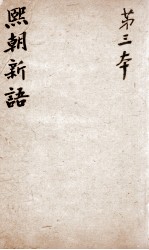 第三本
熙朝新語